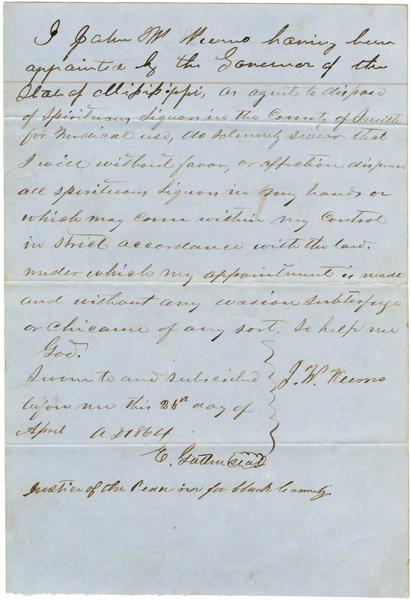 I John W Weems having been
appointed by the Governor of the
State of Mississippi, as agent to dispose
of Spirituous Liquors in the County of Smith
for Medical use, do Solemnly swear that
I will without favor, or affection dispense
all spirituous liquors in my hands or
which may come within my control
in strict accordance with the law.
under which my appointment is made
and without any evasion subterfuge
or chicane of any sort. So help me
God.
Sworn to and subscribed
before me this 26th day of
April A D 1864
J. W. Weems
E. Seal
Justice of the Peace in & for County